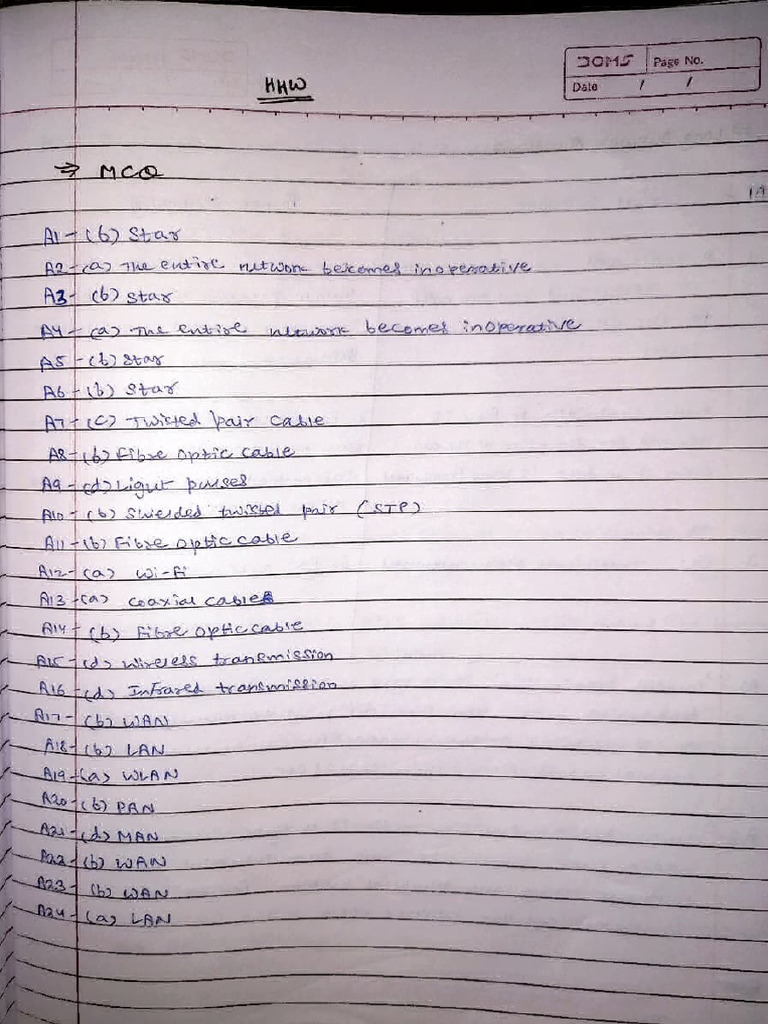 DOMS Page No.
Date / /
HHW
→ MCQ
A1 - (b) Star
A2 - (a) The entire network becomes inoperative
A3 - (b) Star
A4 - (a) The entire network becomes inoperative
A5 - (b) Star
A6 - (b) Star
A7 - (c) Twisted pair cable
A8 - (b) Fibre optic cable
A9 - (d) Light pulses
A10 - (b) Shielded twisted pair (STP)
A11 - (b) Fibre optic cable
A12 - (a) Wi-Fi
A13 - (a) Coaxial cables
A14 - (b) Fibre optic cable
A15 - (d) Wireless transmission
A16 - (d) Infrared transmission
A17 - (b) WAN
A18 - (b) LAN
A19 - (a) WLAN
A20 - (b) PAN
A21 - (d) MAN
A22 - (b) WAN
A23 - (b) WAN
A24 - (a) LAN